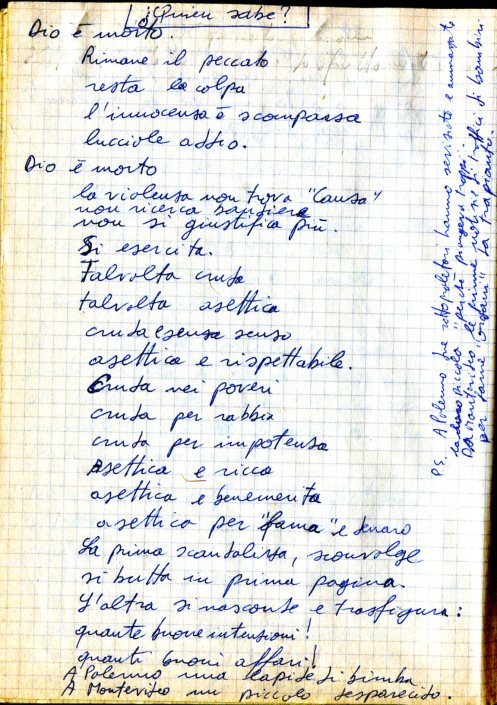 ¿Quien sabe?
Dio è morto.
Rimane il peccato
resta la colpa
l'innocenza è scomparsa
lucciole addio.
Dio è morto
la violenza non trova "Causa"
non ricerca bandiere
non si giustifica più.
Si esercita.
Talvolta cruda
talvolta asettica
cruda e senza senso
asettica e rispettabile.
Cruda nei poveri
cruda per rabbia
cruda per impotenza
Asettica e ricca
asettica e benemerita
asettica per "fama" e denaro
La prima scandalizza, sconvolge
si butta in prima pagina.
L'altra si nasconde e trasfigura:
quante buone intenzioni!
quanti buoni affari!
A Palermo una lapide di bimba
A Montevideo un piccolo desparecido.
P.S. A Palermo due sottoproletari hanno seviziato e ammazzato
piccolo "perché piangeva troppo".
Da Montevideo le prime notizie di bambini
per farne "ordani" da trapianto